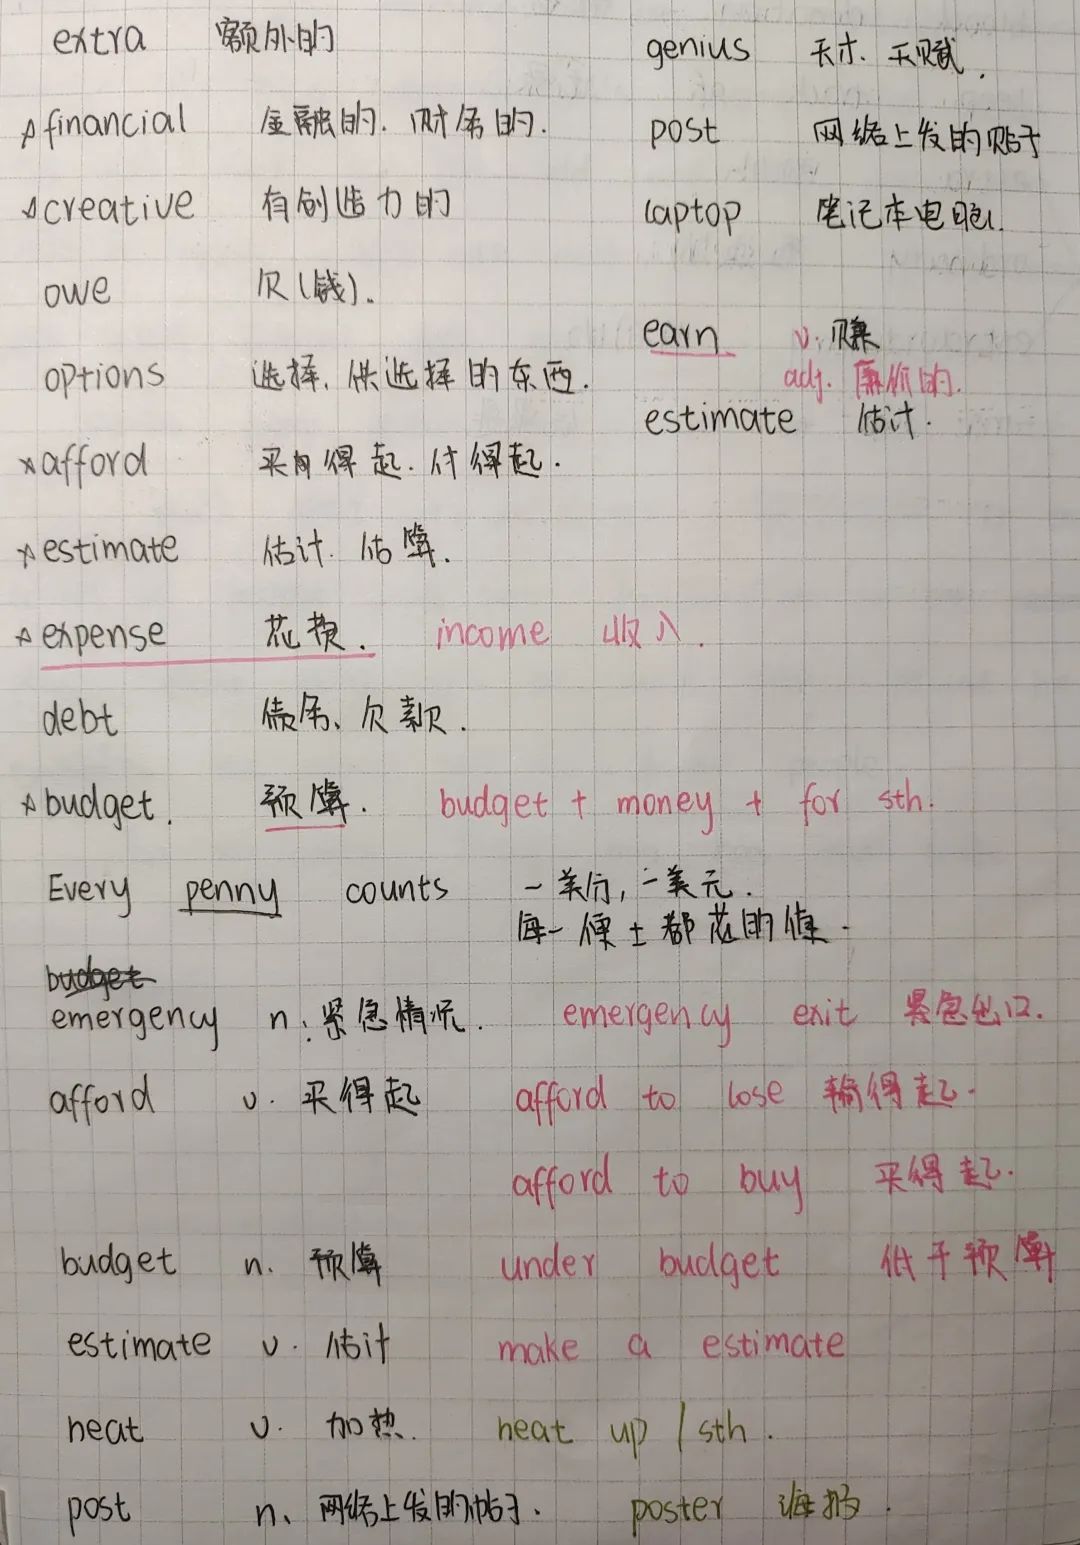 extra 额外的
genius 天才. 天赋.
financial 金融的. 财务的.
post 网络上发的贴子
creative 有创造力的
laptop 笔记本电脑.
owe 欠(钱).
earn v. 赚
options 选择. 供选择的东西.
adj. 廉价的.
estimate 估计.
afford 买得起. 付得起.
estimate 估计. 估算.
expense 花费. income 收入.
debt 债务、欠款.
budget. 预算. budget + money + for sth.
Every penny counts 一美分, 一美元.
每一便士都花的值.
emergency n. 紧急情况. emergency exit 紧急出口.
afford v. 买得起 afford to lose 输得起.
afford to buy 买得起.
budget n. 预算 under budget 低于预算
estimate v. 估计 make a estimate
heat v. 加热. heat up / sth.
post n、网络上发的帖子. poster 海报.